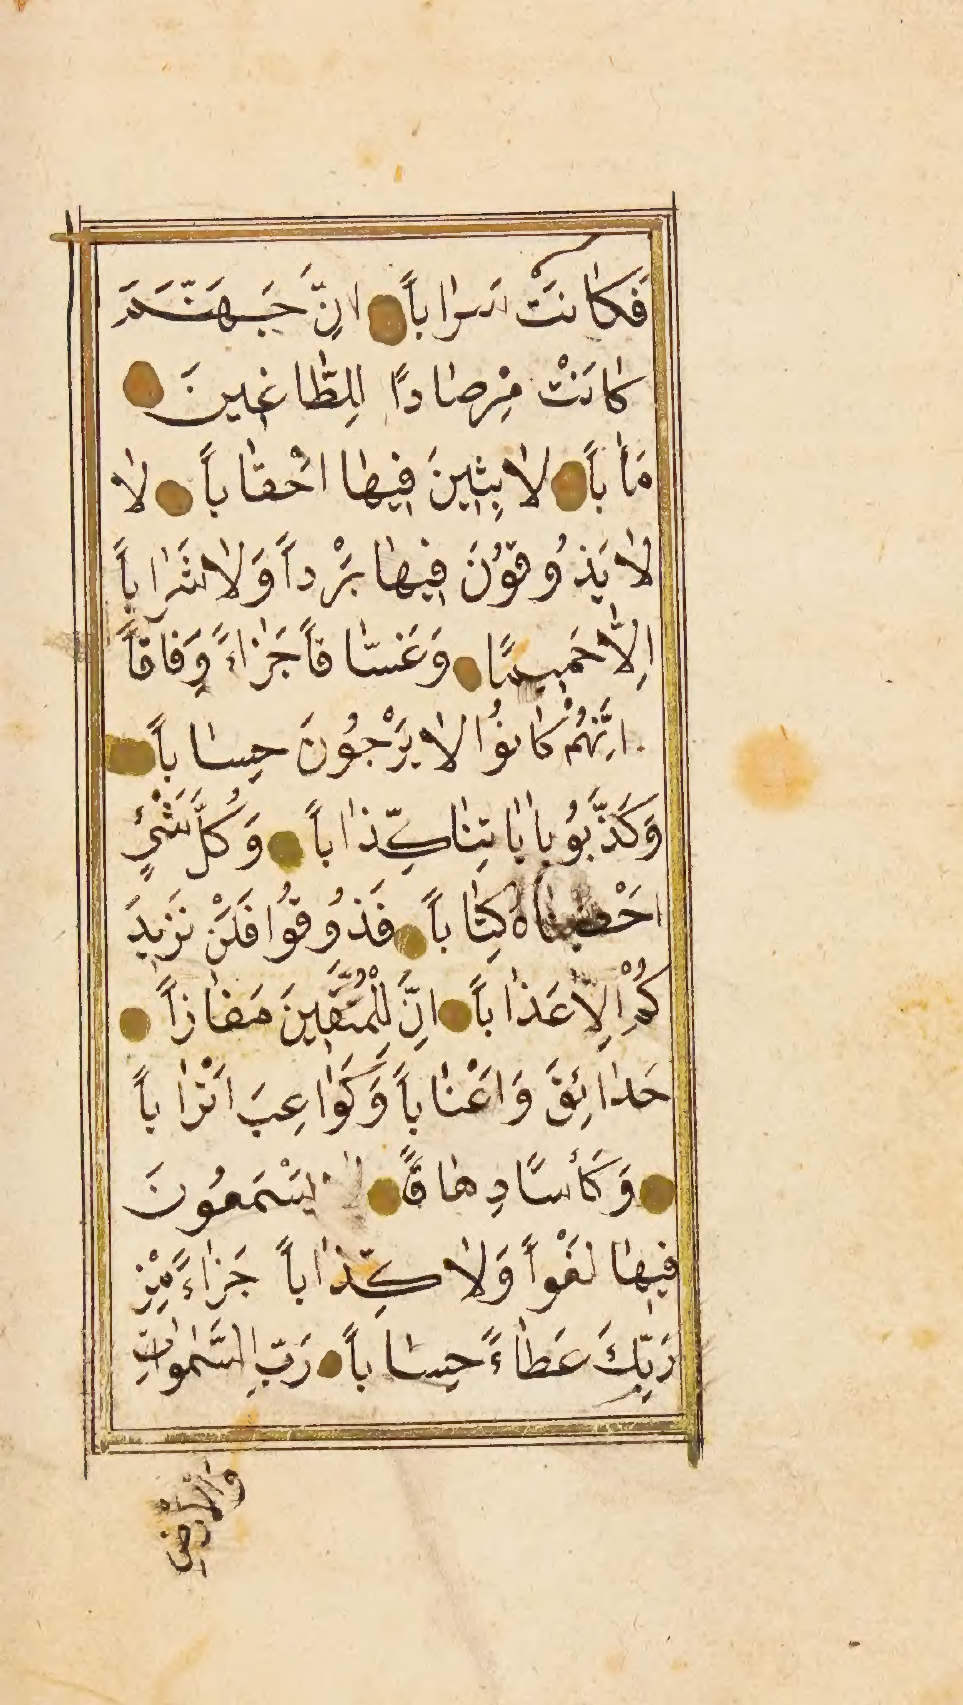 فَكَانَتْ سَرَاباً اِنَّ جَهَنَّمَ
كَانَتْ مِرْصَادًا لِلطَّاغِينَ
مَاٰباً لَابِثِينَ فِيهَا اَحْقَاباً لَا
لَا يَذُوقُونَ فِيهَا بَرْداً وَلَا شَرَاباً
اِلَّا حَمِيمًا وَغَسَّاقاً جَزَاءً وِفَاقاً
اِنَّهُمْ كَانُوا لَا يَرْجُونَ حِسَاباً
وَكَذَّبُوا بِاٰيَاتِنَا كِذَّاباً وَكُلَّ شَيْءٍ
اَحْصَيْنَاهُ كِتَاباً فَذُوقُوا فَلَنْ نَزِيدَ
كُمْ اِلَّا عَذَاباً اِنَّ لِلْمُتَّقِينَ مَفَازاً
حَدَائِقَ وَاَعْنَاباً وَكَوَاعِبَ اَتْرَاباً
وَكَأْسًا دِهَاقاً لَا يَسْمَعُونَ
فِيهَا لَغْواً وَلَا كِذَّاباً جَزَاءً مِنْ
رَبِّكَ عَطَاءً حِسَاباً رَبِّ السَّمٰوَاتِ
وَالْاَرْضِ